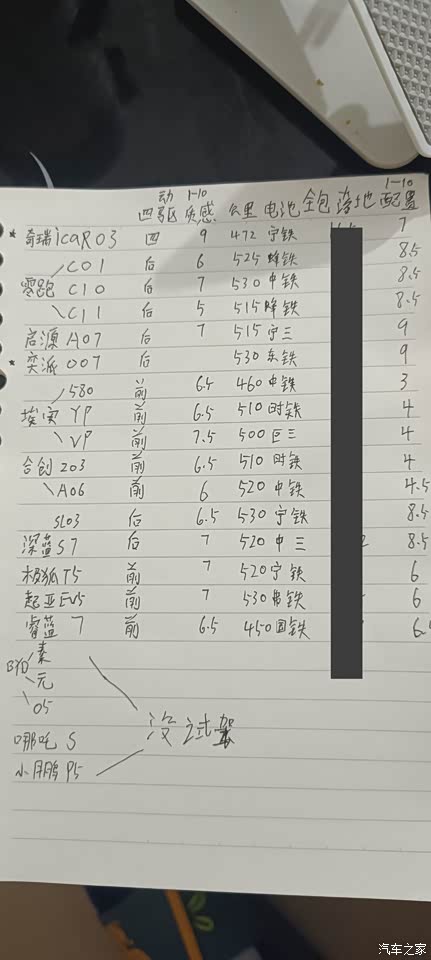 动 1-10 1-10
四驱区 质感 公里 电池 全包 落地 配置
* 奇瑞 icaR03 四 9 472 宁铁 7
C01 后 6 525 蜂铁 8.5
零跑 C10 后 7 530 中铁 8.5
C11 后 5 515 蜂铁 8.5
启源 A07 后 7 515 宁三 9
* 奕派 007 后 530 东铁 9
580 前 6.5 460 中铁 3
埃安 YP 前 6.5 510 时铁 4
VP 前 7.5 500 巨三 4
合创 Z03 前 6.5 510 时铁 4
A06 前 6 520 中铁 4.5
SL03 后 6.5 530 宁铁 8.5
深蓝 S7 后 7 520 中三 8.5
极狐 T5 前 7 520 宁铁 6
起亚 EV5 前 7 530 弗铁 6
睿蓝 7 前 6.5 450 国铁 6
秦
BYD 元
05
没试驾
哪吒 S
小鹏 P5
汽车之家